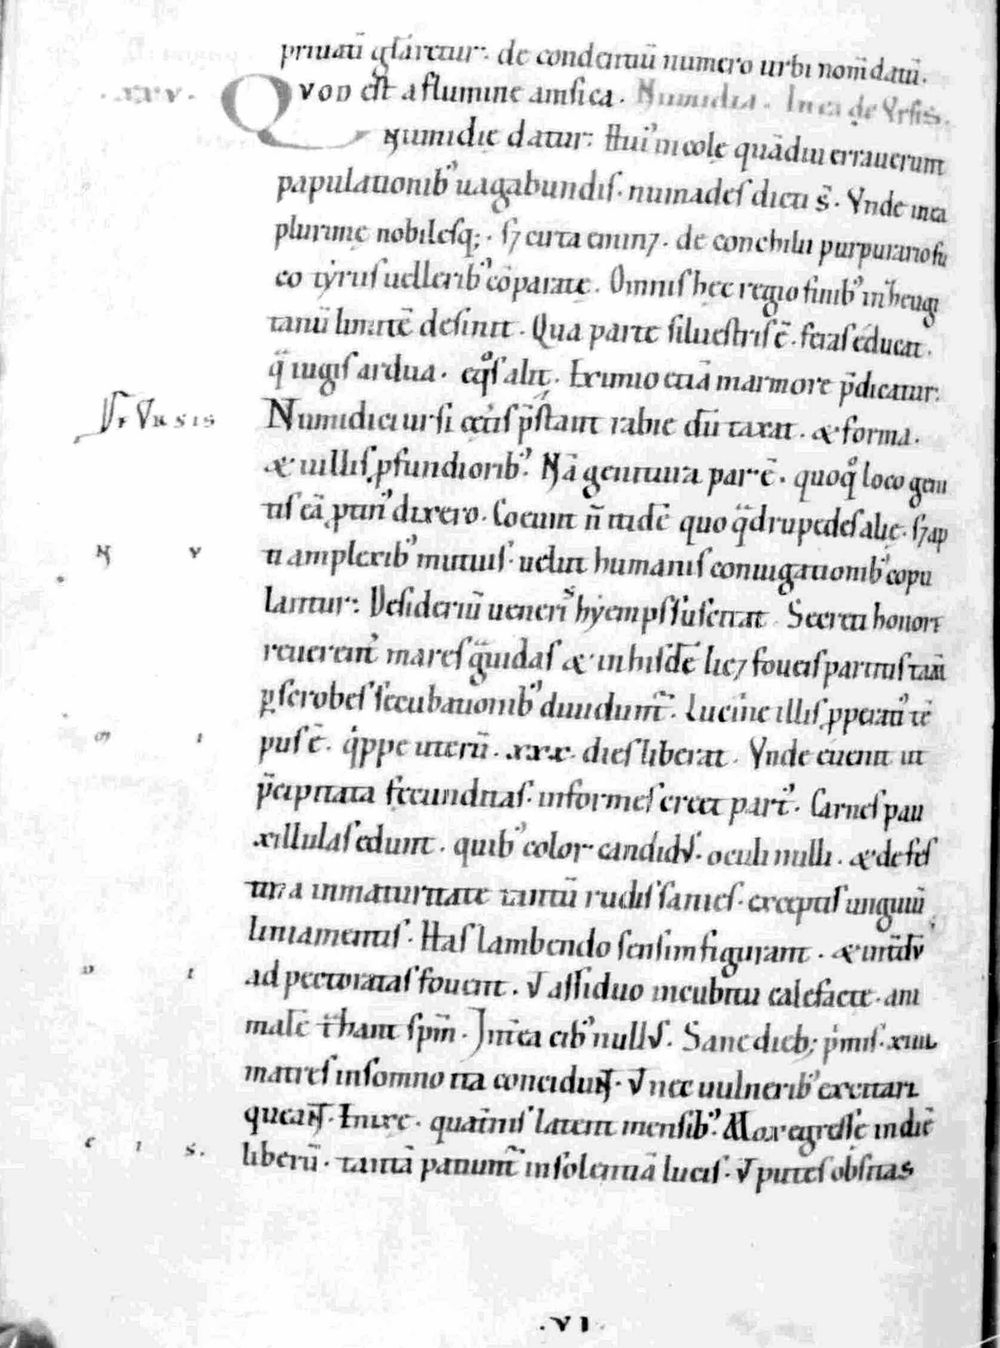 priuatū gl̄aretur: de condentiū numero urbi nom̄ datū.
.XXV. QVOD est a flumine amsica. Numidia. In ea de Vrsis.
Numidie datur: Hui' incole quādiu errauerunt
papulationib' uagabundis. numades dicti s̄. Vnde in ea
plurime nobilesq;. s; cirta emin&. de conchilii purpurario fu
co tyrus uellerib' cōparate. Omnis hec regio finib' in zeugi
tanū limitē desinit. Qua parte siluestris ē. feras educat.
q̄ iugis ardua. eq°s alit. Eximio etiā marmore p̄dicatur:
DE VRSIS Numidici ursi cet̄is p̄stant rabie dū taxat. & forma.
& uillis ꝓfundiorib'. Nā genitura par ē. quoq° loco geni
tis eā ꝓtin' dixero. Coeunt n̄ itidē quo q̄drupedes alie. s; ap
N V ti amplexib' mutuis. uelut humanis coniugationib' copu
lantur: Desideriū ueneris hyemps suscitat. Secreti honore
reuerent' mares g̃uidas & in hisdē lic& foueis partitis tam̄
ꝑ scrobes secubationib' diuidunt̄. Lucine illis ꝓperati' tē
M I pus ē. q̇ppe uterū. xxx. dies liberat. Vnde euenit ut
p̄cipitata fecunditas. informes creet part'. Carnes pau
xillulas edunt. quib' color candidus. oculi nulli. & de fes
tina inmaturitate tantū rudis sanies. exceptis unguiū
liniamentis. Has lambendo sensim figurant. & int̄dū
D I ad pectoratas fouent. Vt assiduo incubitu calefacte. ani
malē t̄hant spm̄. Int̄ea cib' nullus. Sane dieb; ṗmis. xiiii.
matres in somno ita concidunt. Vt nec uulnerib' excitari
queant. Enixe. quat̄nis latent mensib'. Mox egresse in diē
E I S. liberū. tantā patiunt̄ insolentiā lucis. Vt putes obsitas
.VI.